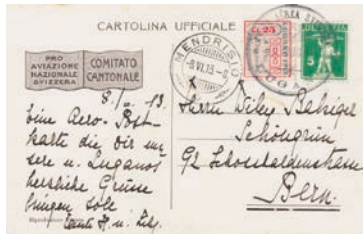 CARTOLINA UFFICIALE
PRO
AVIAZIONE
NAZIONALE
SVIZZERA
COMITATO
CANTONALE
MENDRISIO
-8.VI.13.-9
Ct. 25
5
8./VI. 13.
Eine Aero-Post-
karte die dir un
sere u. Luganos
herzliche Grüsse
bringen soll.
Tante
Herrn Willy Balsiger
Schöngrün
92 Schosshaldenstrasse
Bern.